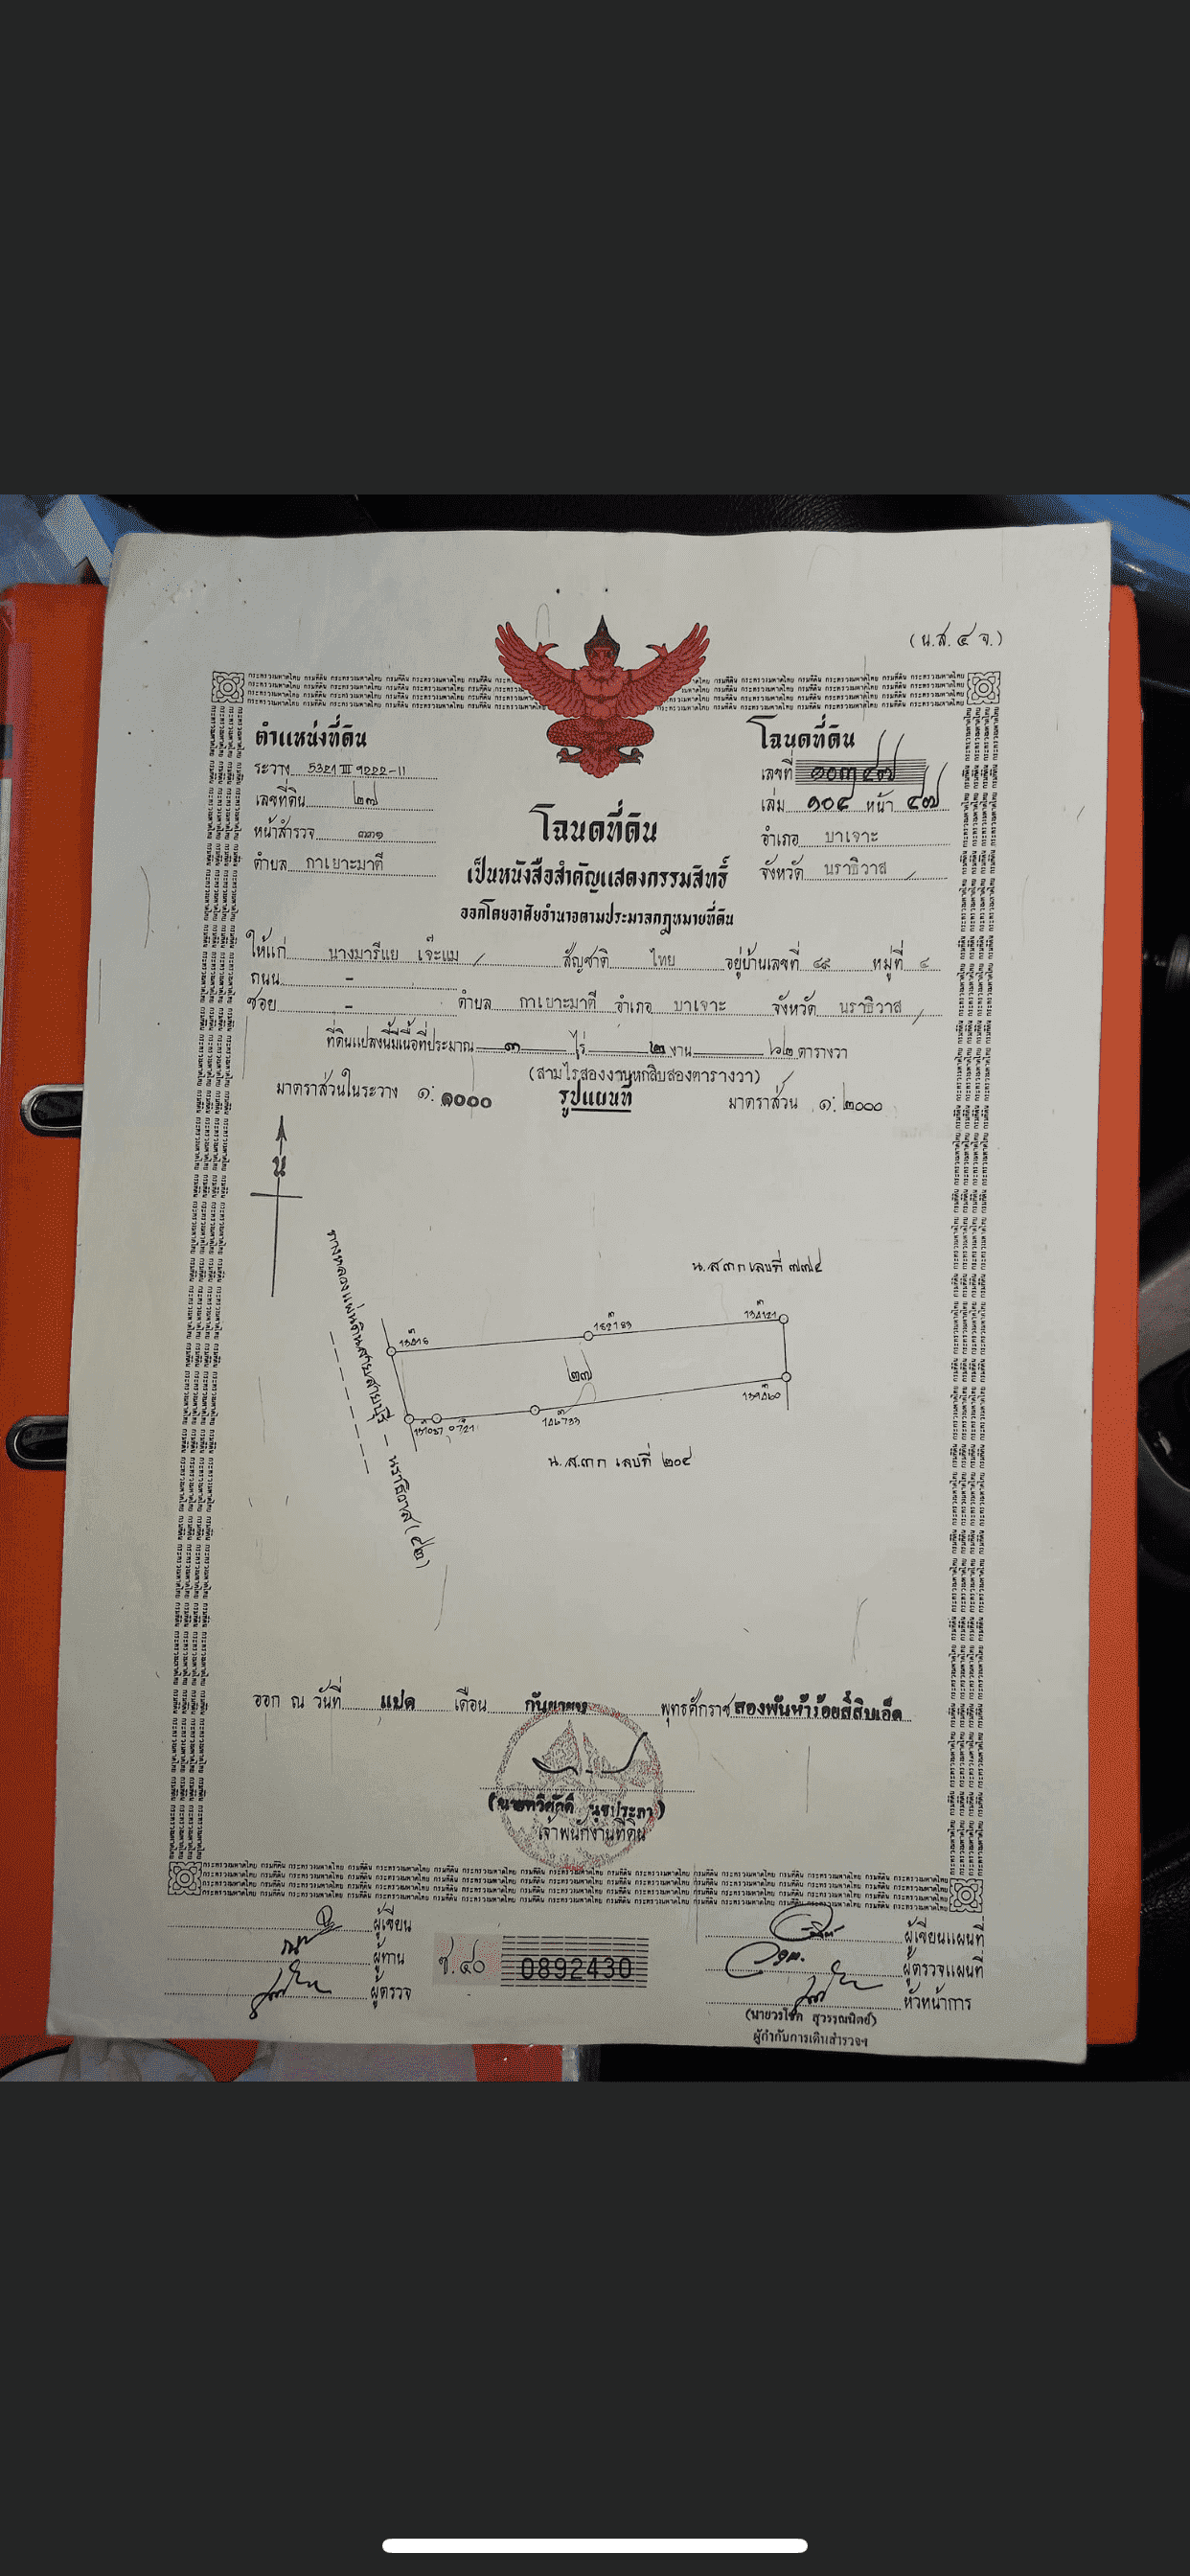 (น.ส. ๔ จ.)
ตำแหน่งที่ดิน
ระวาง 5321 III 9222-11
เลขที่ดิน ๒๗
หน้าสำรวจ ๓๓๑
ตำบล กาเยาะมาตี
โฉนดที่ดิน
เลขที่ ๑๐๓๔๗
เล่ม ๑๐๔ หน้า ๔๗
อำเภอ บาเจาะ
จังหวัด นราธิวาส
โฉนดที่ดิน
เป็นหนังสือสำคัญแสดงกรรมสิทธิ์
ออกโดยอาศัยอำนาจตามประมวลกฎหมายที่ดิน
ให้แก่ นางมารีแย เจ๊ะแม สัญชาติ ไทย อยู่บ้านเลขที่ ๔๙ หมู่ที่ ๔
ถนน -
ซอย - ตำบล กาเยาะมาตี อำเภอ บาเจาะ จังหวัด นราธิวาส
ที่ดินแปลงนี้มีเนื้อที่ประมาณ ๓ ไร่ ๒ งาน ๖๒ ตารางวา
(สามไร่สองงานหกสิบสองตารางวา)
มาตราส่วนในระวาง ๑:๑๐๐๐ รูปแผนที่ มาตราส่วน ๑:๒๐๐๐
น
ทางหลวงแผ่นดินสายสายบุรี - นราธิวาส (๔๒)
น.ส.๓ก เลขที่ ๗๗๔
๒๗
น.ส.๓ก เลขที่ ๒๐๔
ออก ณ วันที่ แปด เดือน กันยายน พุทธศักราช สองพันห้าร้อยสี่สิบเอ็ด
(นายทวีศักดิ์ นุชประภา)
เจ้าพนักงานที่ดิน
ผู้เขียน
ผู้ทาน
ผู้ตรวจ
ช.๔๐ 0892430
ผู้เขียนแผนที่
ผู้ตรวจแผนที่
หัวหน้าการ
(นายวรโชค สุวรรณนิตย์)
ผู้กำกับการเดินสำรวจฯ